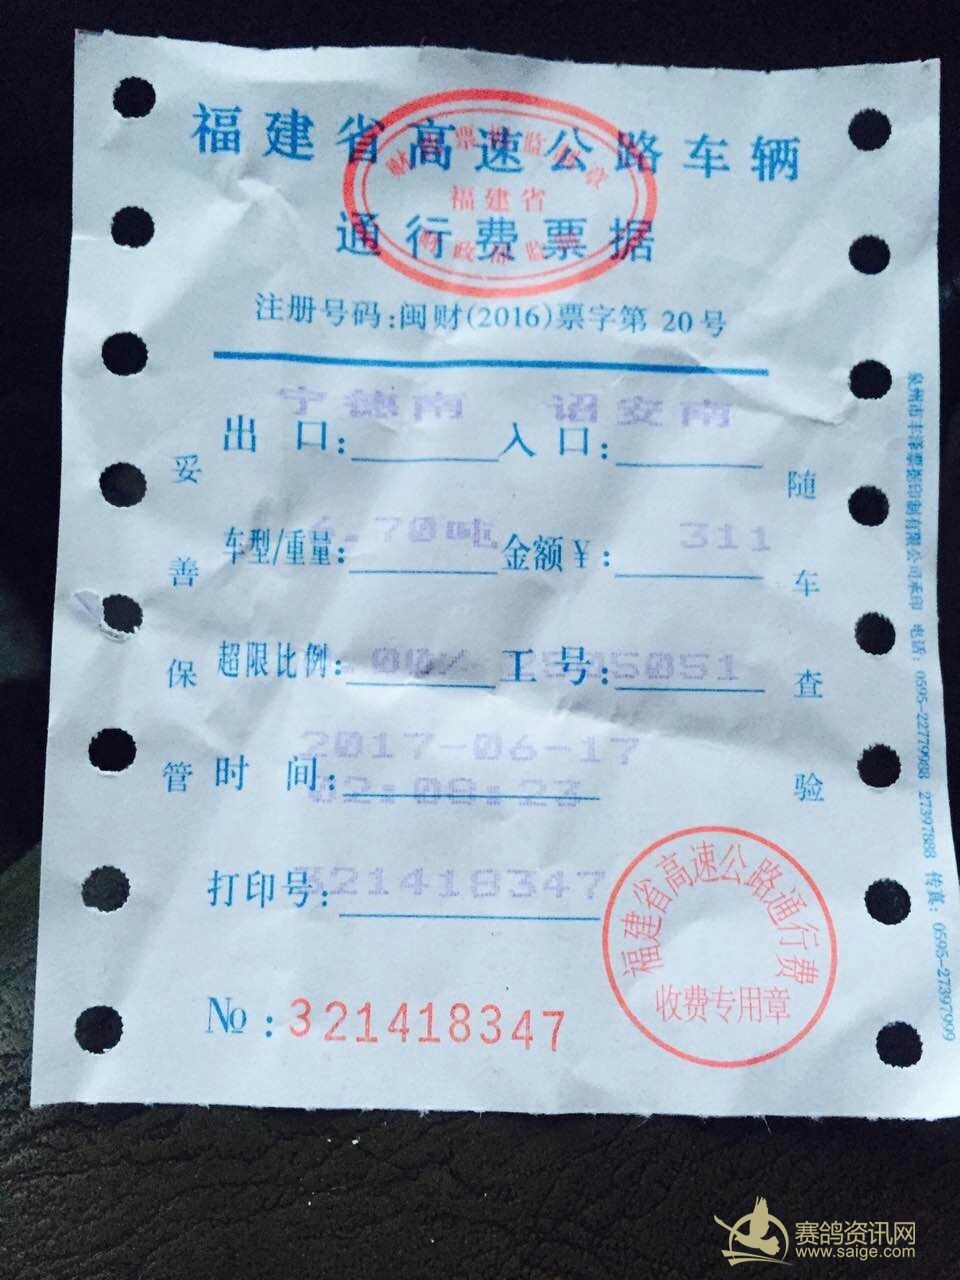 福建省高速公路车辆
通行费票据
福建省
注册号码:闽财(2016)票字第 20号
宁德南 诏安南
出 口: 入口:
6.70吨 311
车型/重量: 金额¥:
超限比例: .00% 工号: 2505051
2017-06-17
时 间:
02:08:23
打印号: 321418347
№: 321418347
妥善保管
随车查验
福建省高速公路通行费
收费专用章
泉州市丰泽票据印制有限公司承印 电话: 0595-22779988 27397888 传真: 0595-27397999
赛鸽资讯网
www.saige.com